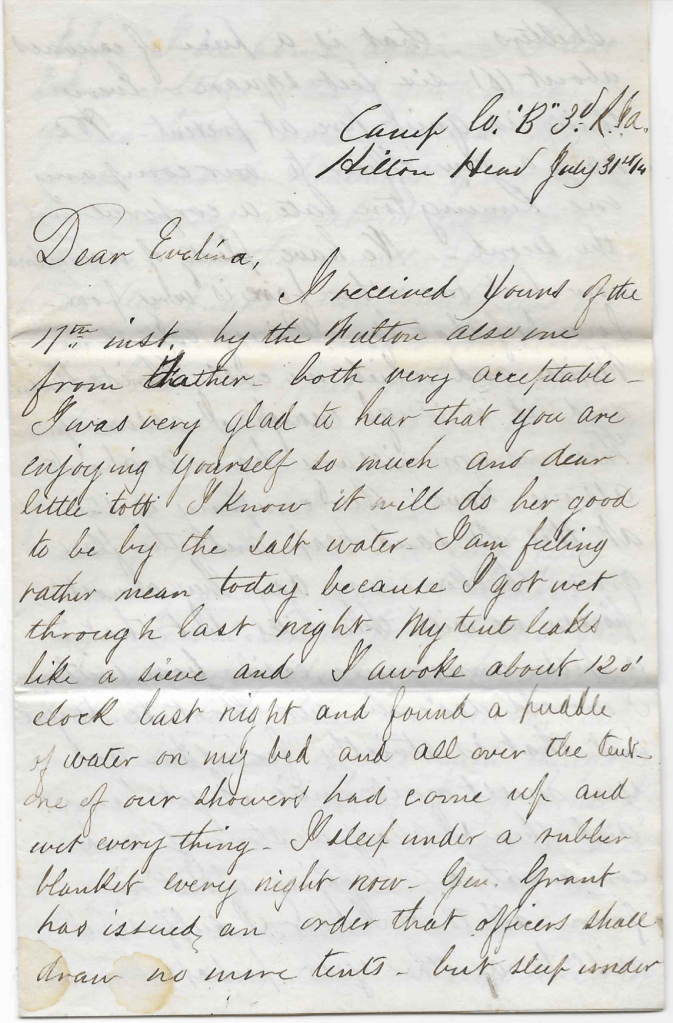 Camp Co. "B" 3d R.I.a.
Hilton Head July 31st
Dear Evelina,
I received yours of the
17th inst. by the Fulton also one
from Father - both very acceptable -
I was very glad to hear that you are
enjoying yourself so much and dear
little tott I know it will do her good
to be by the salt water - I am feeling
rather mean today because I got wet
through last night - My tent leaks
like a sieve and I awoke about 12 o'
clock last night and found a puddle
of water on my bed and all over the tent -
one of our showers had come up and
wet every thing - I sleep under a rubber
blanket every night now - Gen. Grant
has issued an order that officers shall
draw no more tents - but sleep under